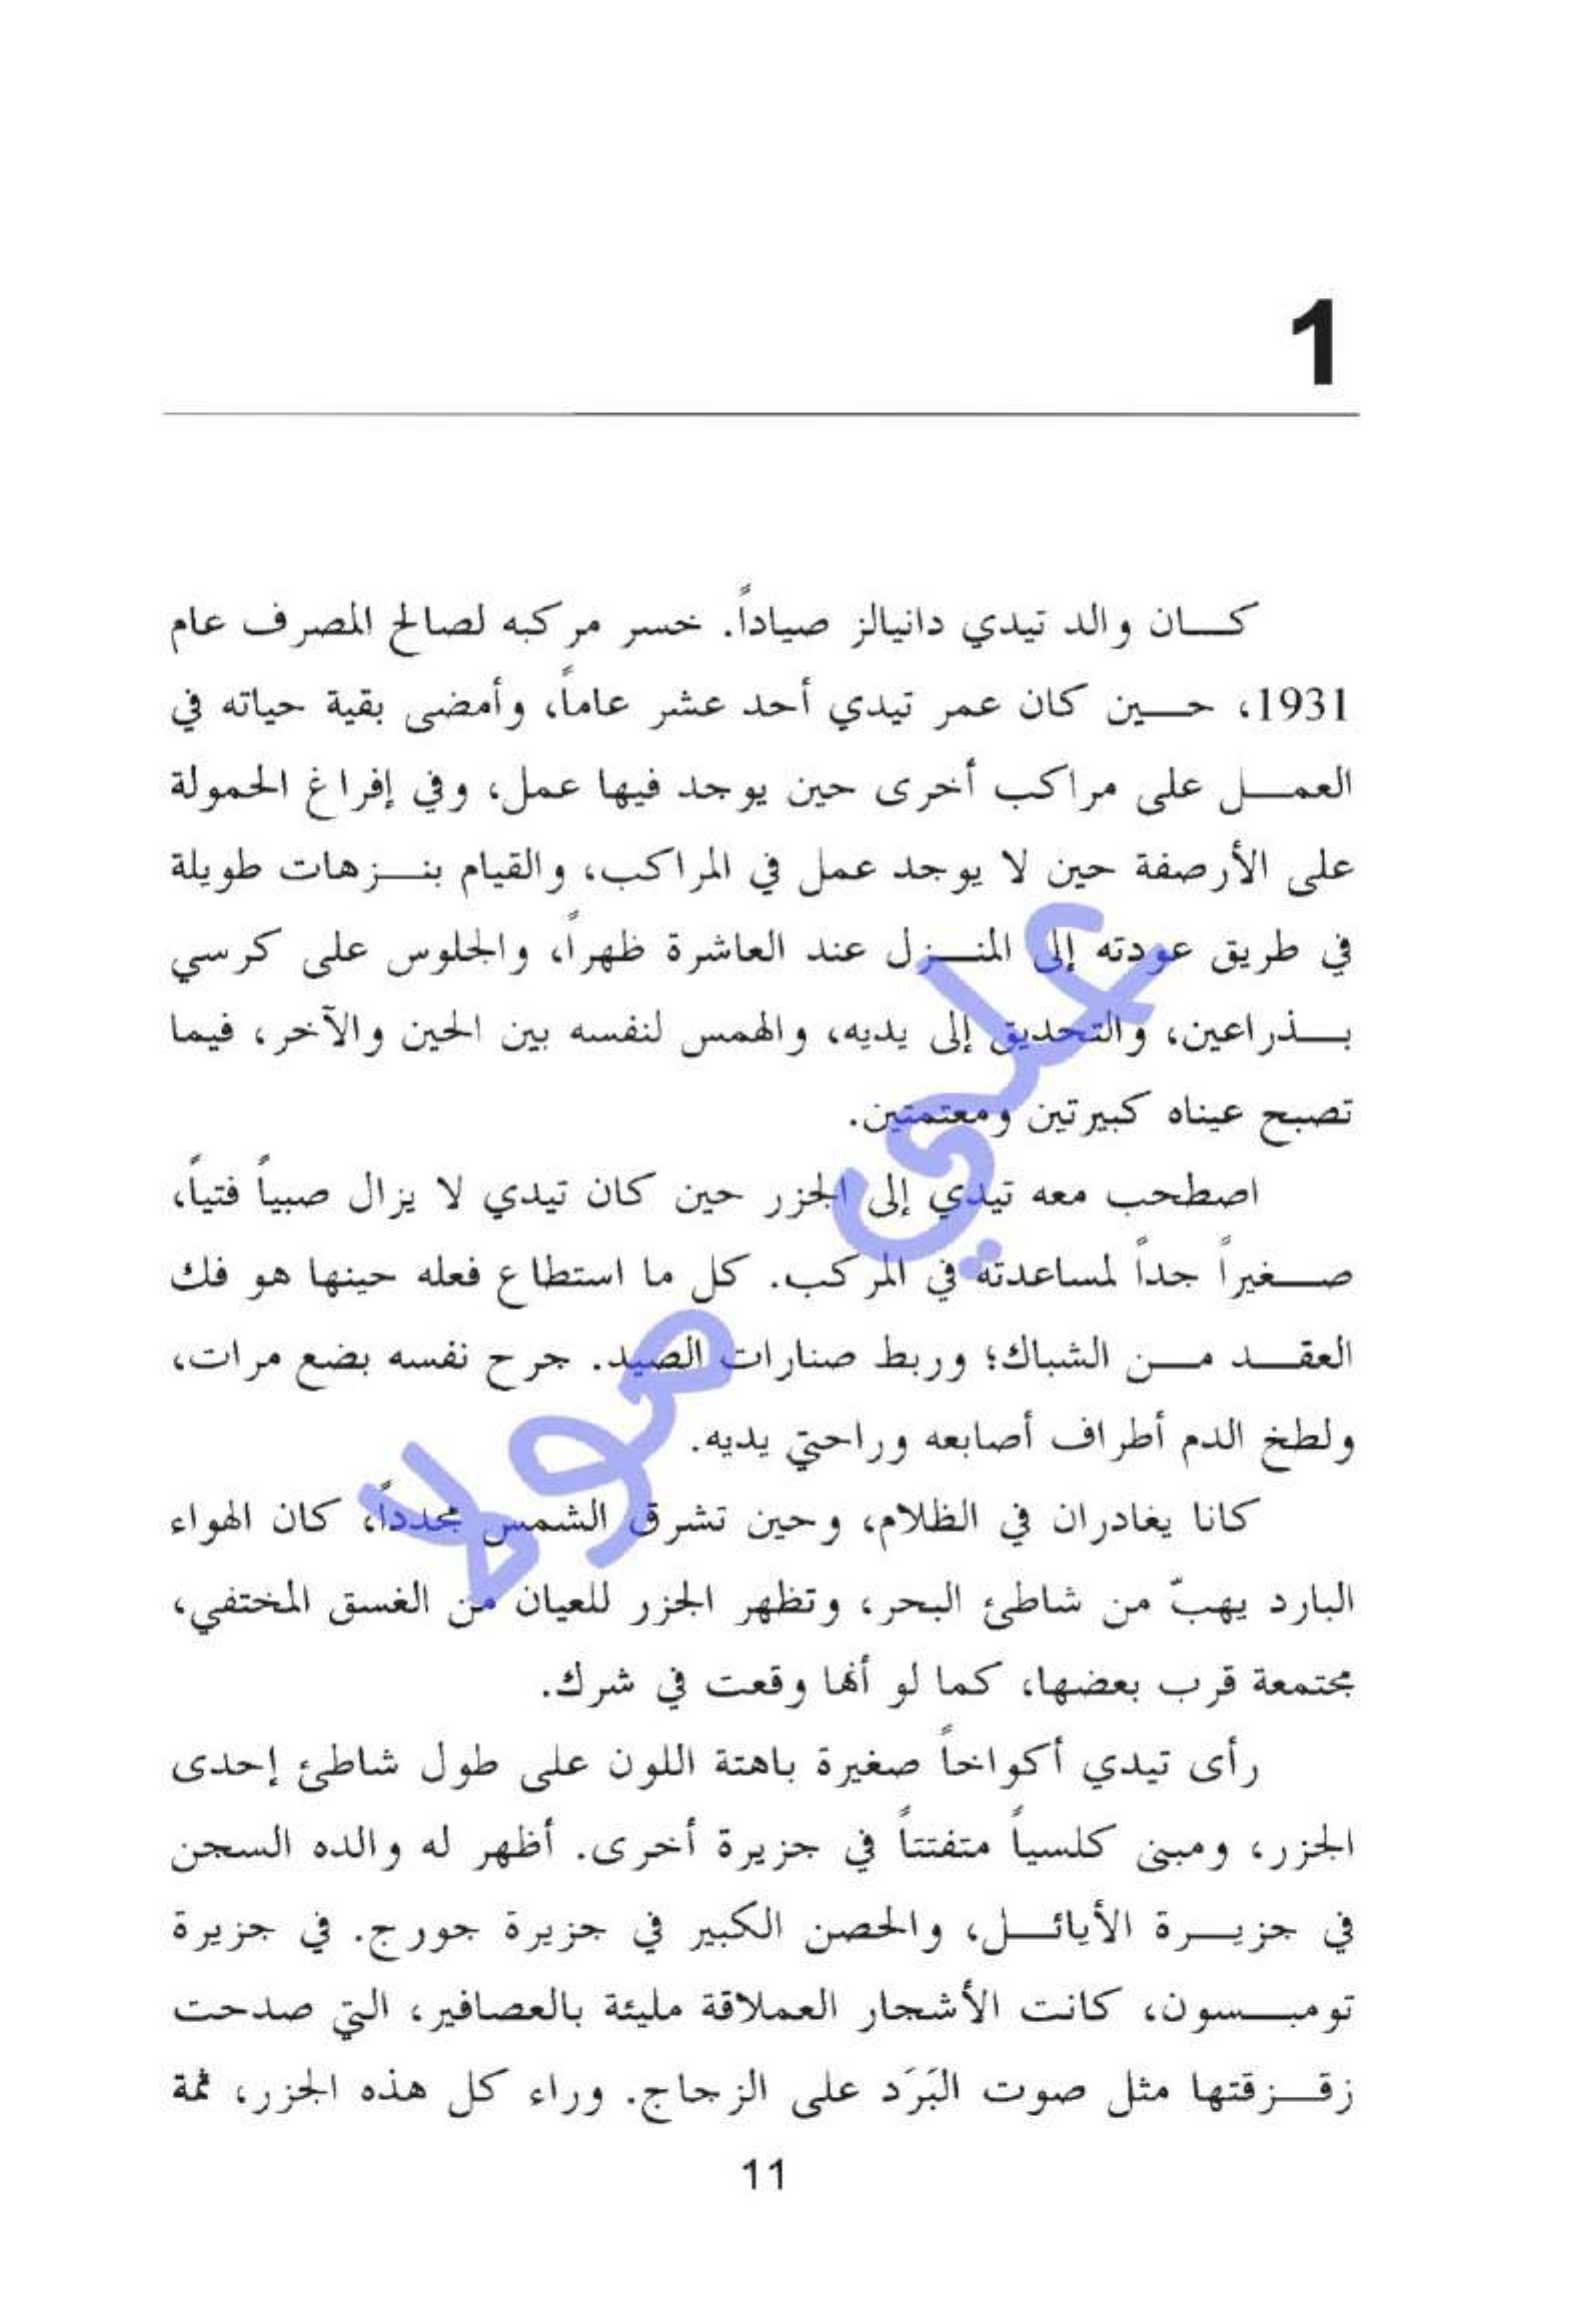 1
كان والد تيدي دانيالز صياداً. خسر مركبه لصالح المصرف عام
1931، حين كان عمر تيدي أحد عشر عاماً، وأمضى بقية حياته في
العمل على مراكب أخرى حين يوجد فيها عمل، وفي إفراغ الحمولة
على الأرصفة حين لا يوجد عمل في المراكب، والقيام بنزهات طويلة
في طريق عودته إلى المنزل عند العاشرة ظهراً، والجلوس على كرسي
بذراعين، والتحديق إلى يديه، والهمس لنفسه بين الحين والآخر، فيما
تصبح عيناه كبيرتين ومعتمتين.
اصطحب معه تيدي إلى الجزر حين كان تيدي لا يزال صبياً فتياً،
صغيراً جداً لمساعدته في المركب. كل ما استطاع فعله حينها هو فك
العقد من الشباك؛ وربط صنارات الصيد. جرح نفسه بضع مرات،
ولطخ الدم أطراف أصابعه وراحتي يديه.
كانا يغادران في الظلام، وحين تشرق الشمس مجدداً، كان الهواء
البارد يهبّ من شاطئ البحر، وتظهر الجزر للعيان من الغسق المختفي،
مجتمعة قرب بعضها، كما لو أنها وقعت في شرك.
رأى تيدي أكواخاً صغيرة باهتة اللون على طول شاطئ إحدى
الجزر، ومبنى كلسياً متفتتاً في جزيرة أخرى. أظهر له والده السجن
في جزيرة الأيائل، والحصن الكبير في جزيرة جورج. في جزيرة
تومبسون، كانت الأشجار العملاقة مليئة بالعصافير، التي صدحت
زقزقتها مثل صوت البَرَد على الزجاج. وراء كل هذه الجزر، ثمة
11
علي مولا